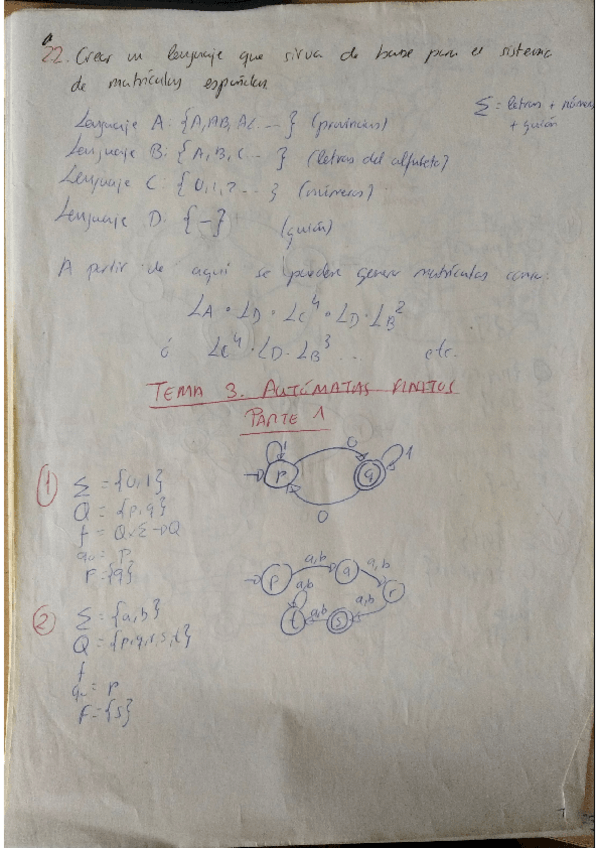 22. Crear un lenguaje que sirva de base para el sistema
de matrículas españolas
Σ = letras + números
+ guión
Lenguaje A: {A, AB, AC ... } (provincias)
Lenguaje B: {A, B, C ... } (letras del alfabeto)
Lenguaje C: {0, 1, 2 ... } (números)
Lenguaje D: {-} (guión)
A partir de aquí se pueden generar matrículas como:
L_A · L_D · L_C^4 · L_D · L_B^2
ó L_C^4 · L_D · L_B^3 ... etc.
TEMA 3. AUTÓMATAS FINITOS
PARTE 1
1
Σ = {0,1}
Q = {p,q}
f = Q×Σ→Q
q0 = p
F = {q}
1
p
0
q
1
0
2
Σ = {a,b}
Q = {p,q,r,s,t}
f
q0 = p
F = {s}
p
a,b
q
a,b
r
a,b
s
a,b
t
a,b